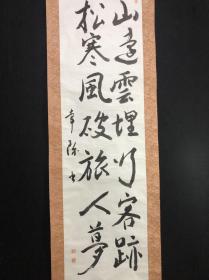 山遠雲埋行客跡
松寒風破旅人夢